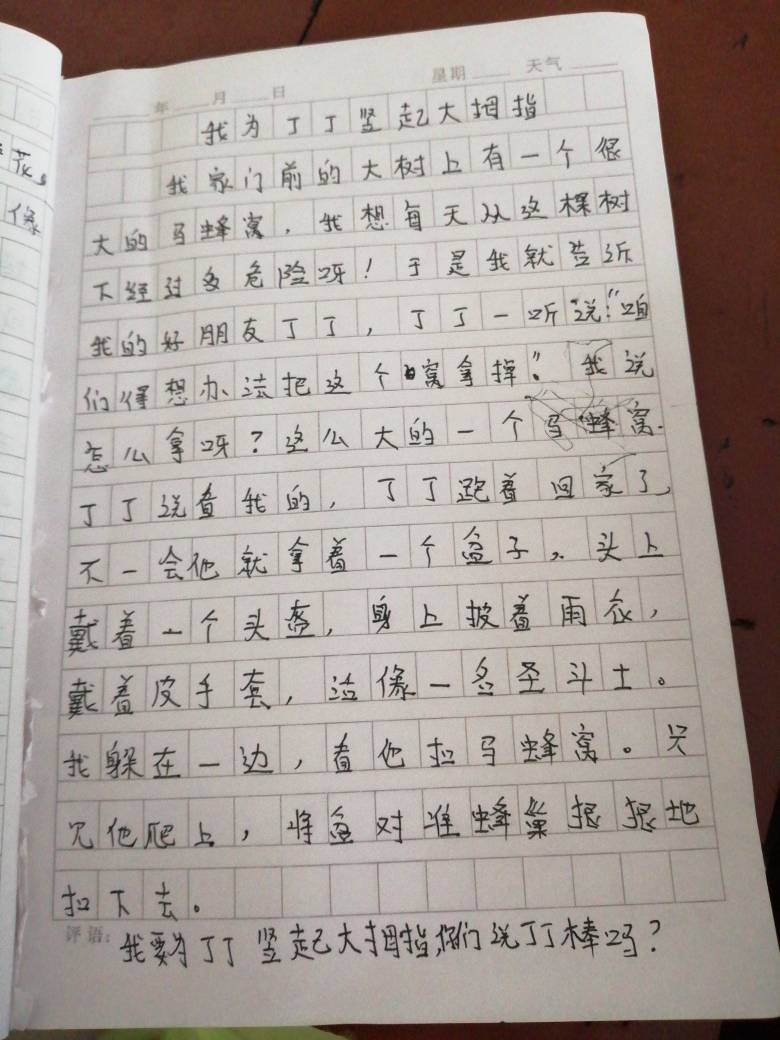 花。
像
年 月 日 星期 天气
我为丁丁竖起大拇指
我家门前的大树上有一个很
大的马蜂窝，我想每天从这棵树
下经过多危险呀！于是我就告诉
我的好朋友丁丁，丁丁一听说！"咱
们得想办法把这个窝拿掉。"我说
怎么拿呀？这么大的一个马蜂窝.
丁丁说看我的，丁丁跑着回家了，
不一会他就拿着一个盆子。头上
戴着一个头盔，身上披着雨衣，
戴着皮手套，活像一名圣斗士。
我躲在一边，看他扣马蜂窝。只
见他爬上，将盆对准蜂巢狠狠地
扣下去。
评语：
我要为丁丁竖起大拇指,你们说丁丁棒吗？